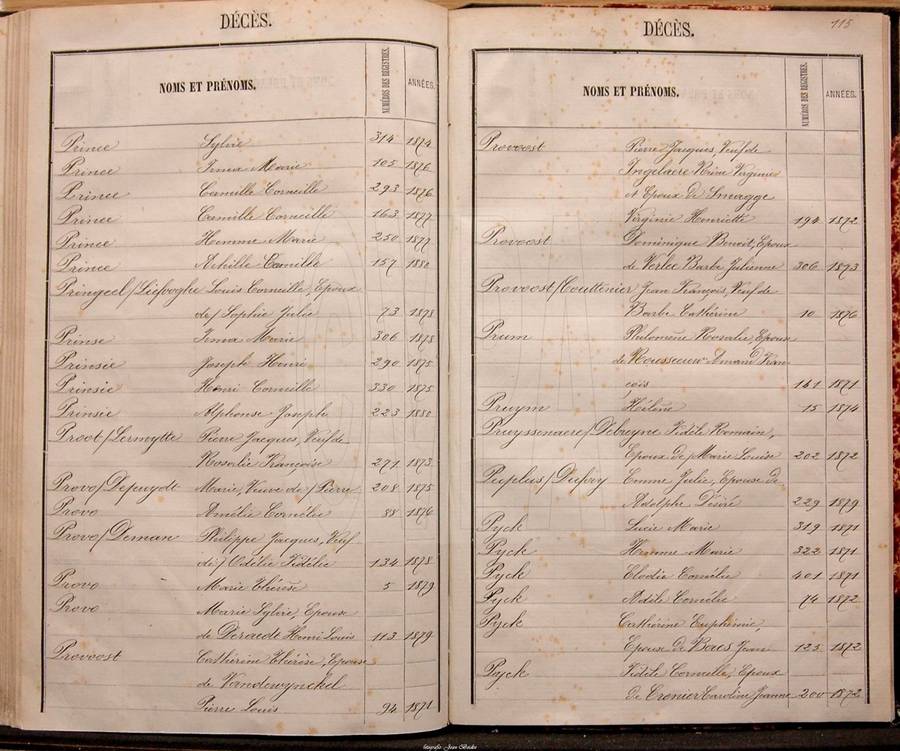 DÉCÈS.
NOMS ET PRÉNOMS. NUMÉROS DES REGISTRES. ANNÉES.
Prince Sylvie 314 1874
Prince Irma Marie 105 1876
Prince Camille Corneille 293 1876
Prince Camille Corneille 163 1877
Prince Hemma Marie 250 1877
Prince Achille Camille 157 1880
Pringeel/Liefooghe Louis Corneille, Epoux
de/Sophie Julie 73 1878
Prinse Irma Marie 306 1875
Prinsie Joseph Henri 290 1875
Prinsie Henri Corneille 330 1875
Prinsie Alphonse Joseph 223 1880
Proot/Lermytte Pierre Jacques, Veuf de
Rosalie Françoise 271 1873
Provo/Depuydt Marie, Veuve de/Pierre 208 1875
Provo Amélie Cornélie 88 1876
Provo/Deman Philippe Jacques, Veuf
de/Odélie Fidélie 134 1878
Provo Marie Thérèse 5 1879
Provo Marie Sylvie, Epouse
de Deraedt Henri Louis 113 1879
Provoost Cathérine Thérèse, Epouse
de Vandewynckel
Pierre Louis 94 1871
DÉCÈS. 115
NOMS ET PRÉNOMS. NUMÉROS DES REGISTRES. ANNÉES.
Provoost Pierre Jacques, Veuf de
Ingelaere Virginie
et Epoux de Smagge
Virginie Henriette 194 1872
Provoost Dominique Benoit, Epoux
de Verlee Barbe Julienne 306 1873
Provoost/Couttenier Jean François, Veuf de
Barbe Cathérine 10 1876
Prum Philomène Rosalie, Epouse
de Rousseeuw Amand Fran-
çois 141 1871
Pruym Hélène 15 1874
Pruyssenaere/Debruyne Fidèle Romain,
Epoux de/Marie Louise 202 1872
Pupluss/Dufoy Emme Julie, Epouse de
Adolphe Désiré 229 1879
Pyck Lucie Marie 319 1871
Pyck Hemma Marie 322 1871
Pyck Elodie Cornélie 401 1871
Pyck Adèle Cornélie 74 1872
Pyck Cathérine Euphémie,
Epouse de Baes Jean 125 1872
Pyck Fidèle Corneille, Epoux
de Cronier Caroline Jeanne 200 1872
fotografie Jean Baske